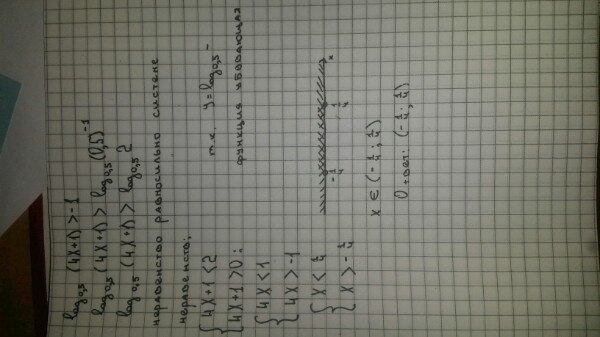 log₀,₅ (4x+1) > -1
log₀,₅ (4x+1) > log₀,₅ (0,5)⁻¹
log₀,₅ (4x+1) > log₀,₅ 2
неравенство равносильно системе
неравенств:
{ 4x+1 < 2 т.к. y = log₀,₅ -
{ 4x+1 > 0; функция убывающая
{ 4x < 1
{ 4x > -1
{ x < 1/4
{ x > -1/4
-1/4 1/4 x
x ∈ (-1/4; 1/4)
Ответ: (-1/4; 1/4)